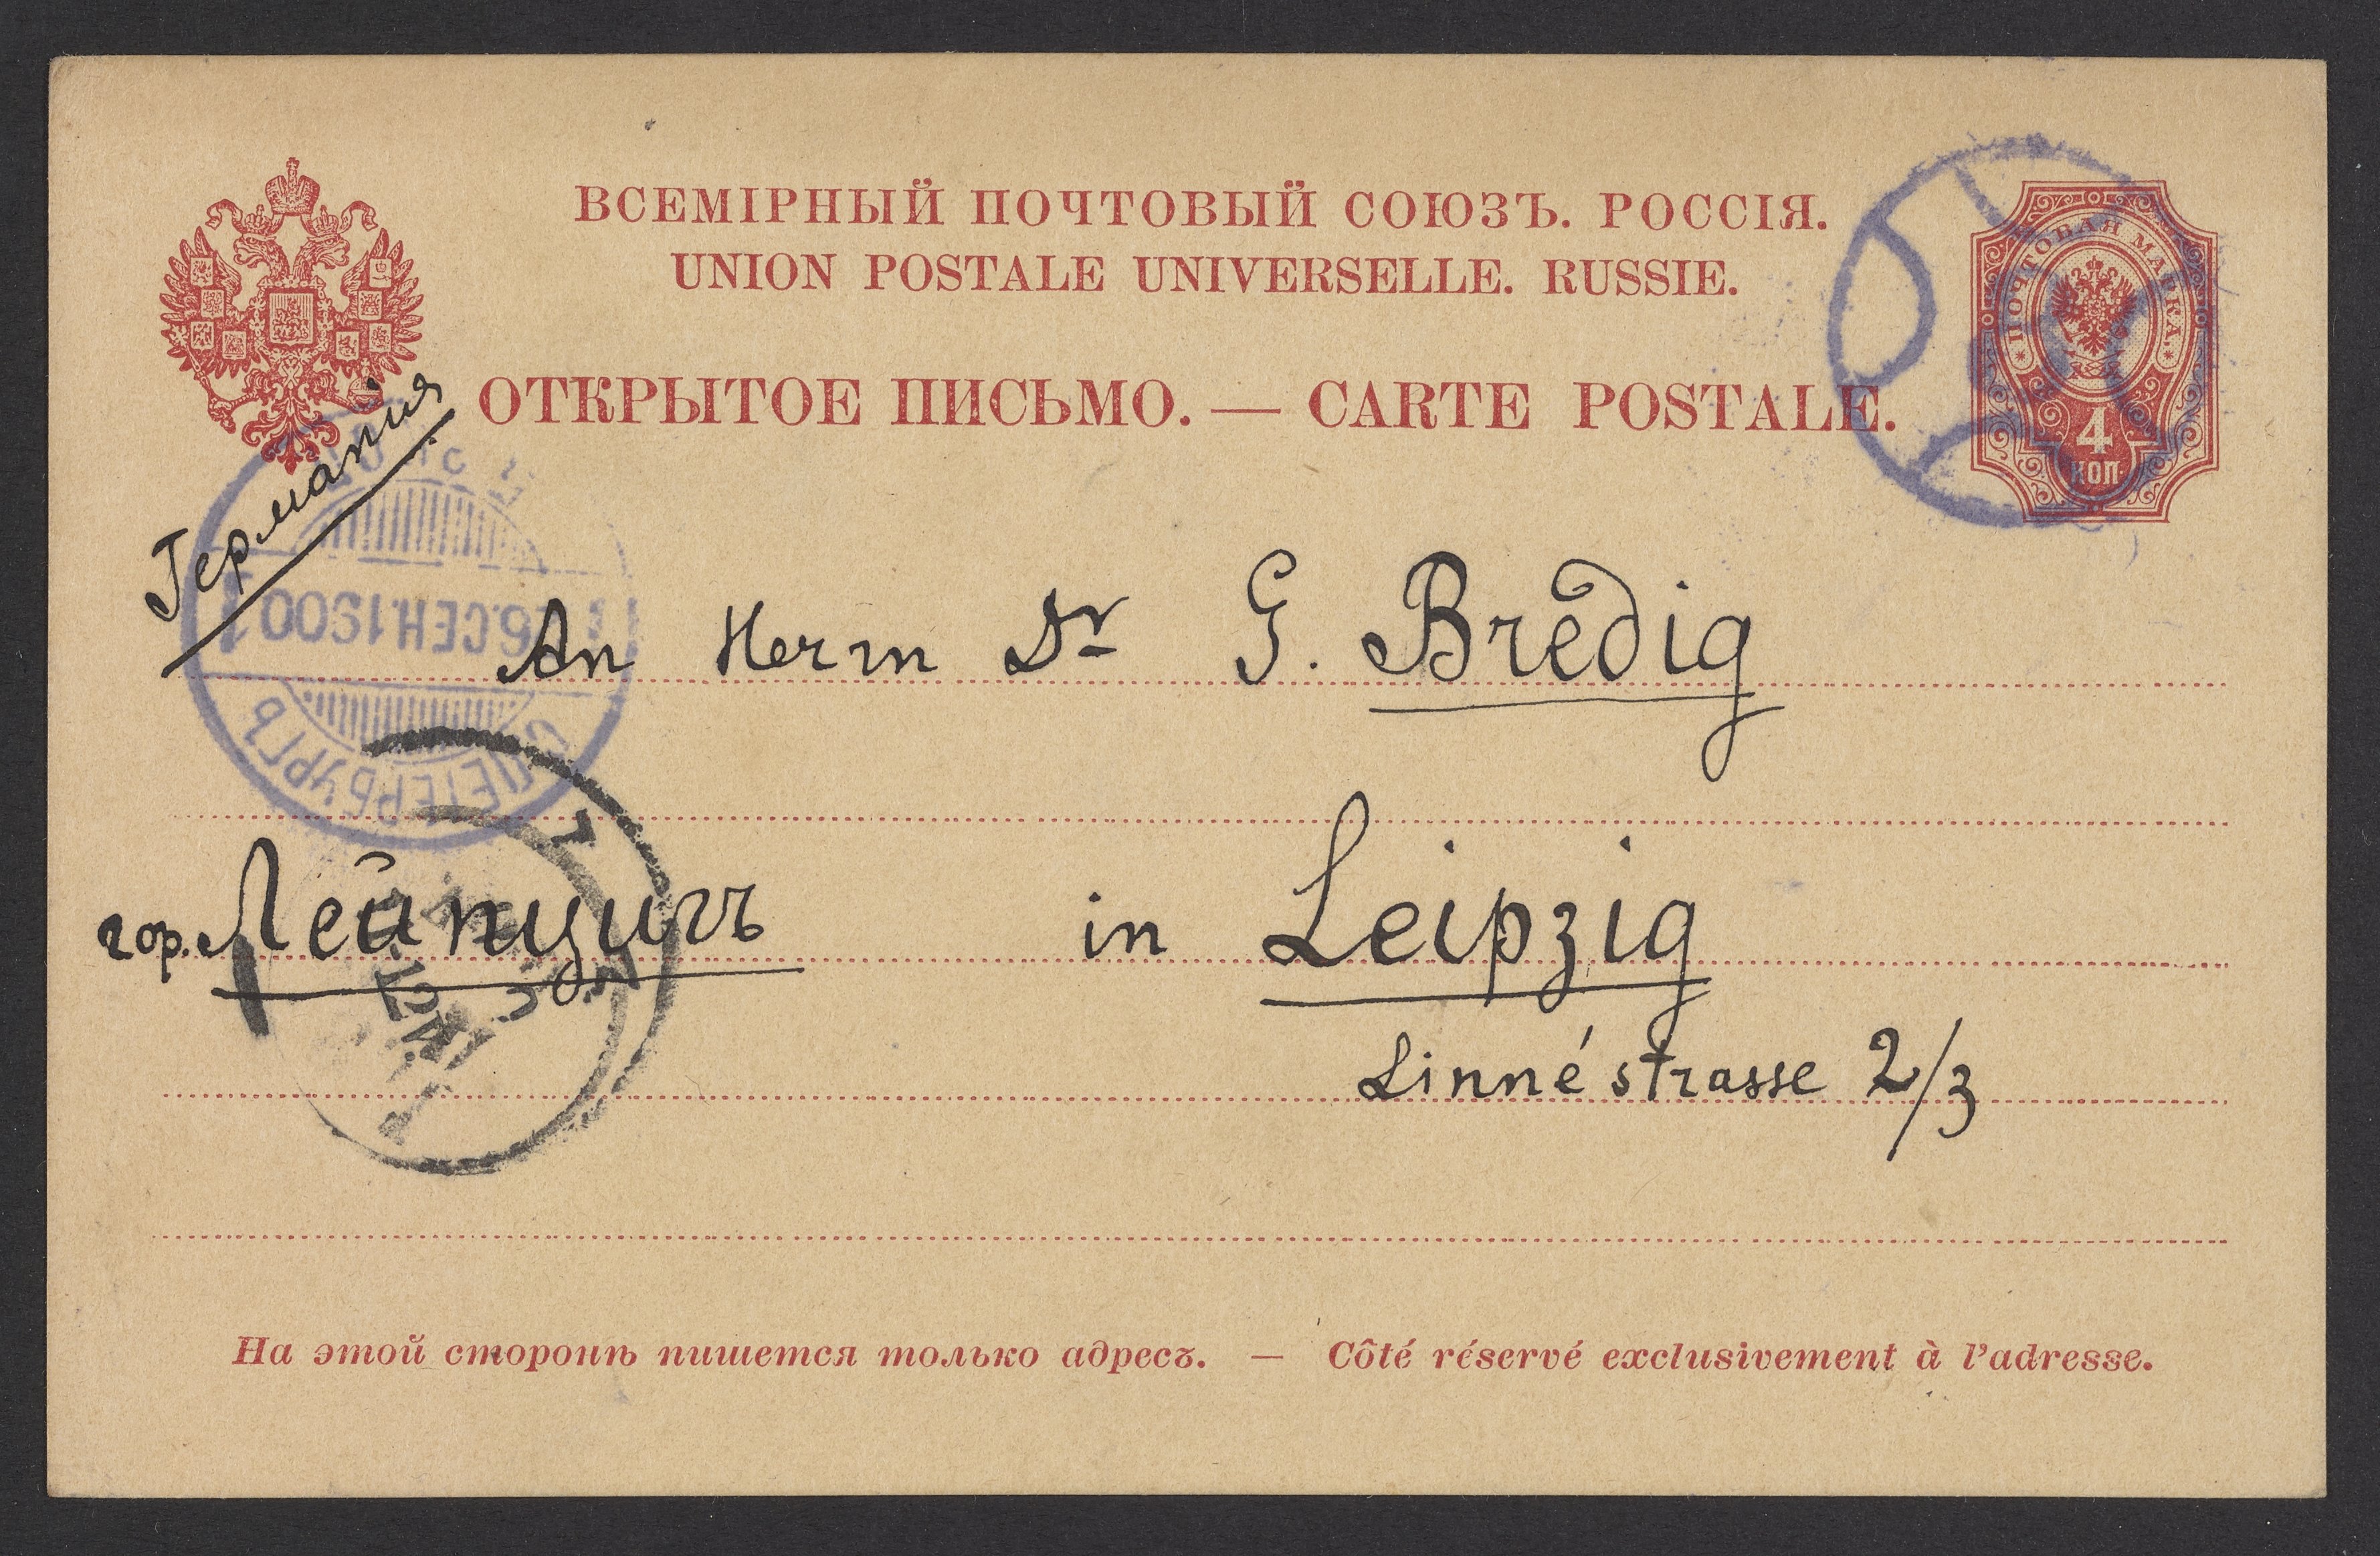 ВСЕМІРНЫЙ ПОЧТОВЫЙ СОЮЗЪ. РОССІЯ.
UNION POSTALE UNIVERSELLE. RUSSIE.
ОТКРЫТОЕ ПИСЬМО. — CARTE POSTALE.
ПОЧТОВАЯ МАРКА.
4
КОП.
Германия
6.СЕН.1900
С.ПЕТЕРБУРГЪ
An Herrn Dr G. Bredig
гор. Лейпцигъ in Leipzig
Linnéstrasse 2/3
На этой сторонѣ пишется только адресъ. — Côté réservé exclusivement à l'adresse.